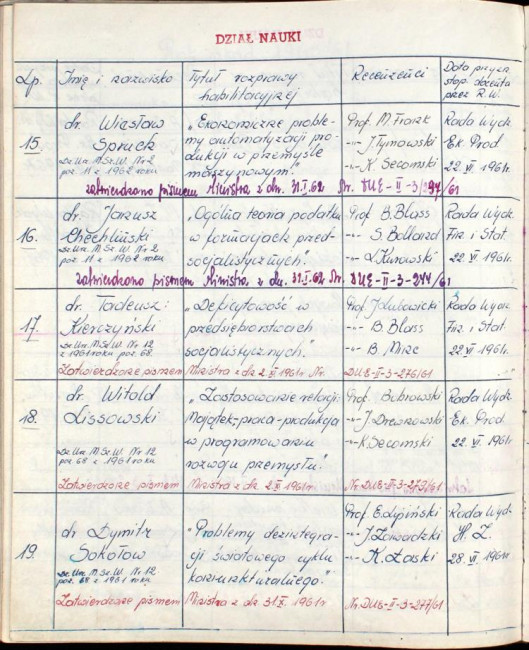 DZIAŁ NAUKI
Lp. Imię i nazwisko Tytuł rozprawy habilitacyjnej Recenzenci Data przyzn. stop. docenta przez R.W.
15. dr. Wiesław „Ekonomiczne proble- Prof. M. Frank Rada Wydz.
Spruch my automatyzacji pro- -„- J. Tymowski Ek. Prod.
Dz.Urz. M.Sz.W. Nr 2 dukcji w przemyśle -„- K. Secomski 22.VI.1961r.
poz. 11 z 1962 roku maszynowym".
zatwierdzono pismem Ministra z dn. 31.I.62 Nr. DUE-II-3-/61
16. dr. Janusz „Ogólna teoria podatku Prof. B. Blass Rada Wydz.
Chechliński w formacjach przed- -„- S. Bolland Fin. i Stat.
Dz.Urz. M.Sz.W. Nr 2 socjalistycznych". -„- L. Kurowski 22.VI.1961r.
poz. 11 z 1962 roku
zatwierdzono pismem Ministra z dn. 31.I.62 Nr. DUE-II-3-244/61
17. dr. Tadeusz „Deficytowość w Prof. J. Lubowicki Rada Wydz.
Kierczyński przedsiębiorstwach -„- B. Blass Fin. i Stat.
Dz.Urz. M.Sz.W. Nr 12 socjalistycznych." -„- B. Minc 22.VI.1961r.
z 1961 roku poz. 68.
Zatwierdzone pismem Ministra z dn. 2.X.1961r. Nr. DUE-II-3-276/61
18. dr. Witold „Zastosowanie relacji: Prof. Bobrowski Rada Wydz.
Lissowski Majątek-praca-produkcja -„- J. Drewnowski Ek. Prod.
w programowaniu -„- K. Secomski 22.VI.1961r.
Dz.Urz. M.Sz.W. Nr 12 rozwoju przemysłu"
poz. 68 z 1961 roku
Zatwierdzone pismem Ministra z dn. 2.X.1961r. Nr. DUE-II-3-273/61
19. dr Dymitr „Problemy dezintegra- Prof. E. Lipiński Rada Wydz.
Sokołow cji światowego cyklu -„- J. Zawadzki H. Z.
Dz.Urz. M.Sz.W. Nr 12 koniunkturalnego." -„- K. Łaski 28.VI.1961r.
poz. 68 z 1961 roku
Zatwierdzone pismem Ministra z dn. 31.X.1961r Nr. DUE-II-3-277/61